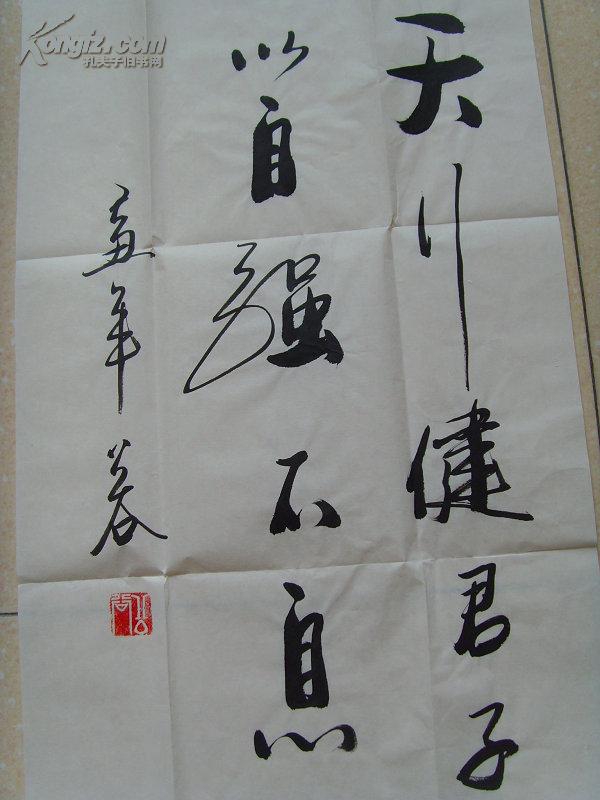 天行健君子
以自强不息
年
Kongfz.com
孔夫子旧书网